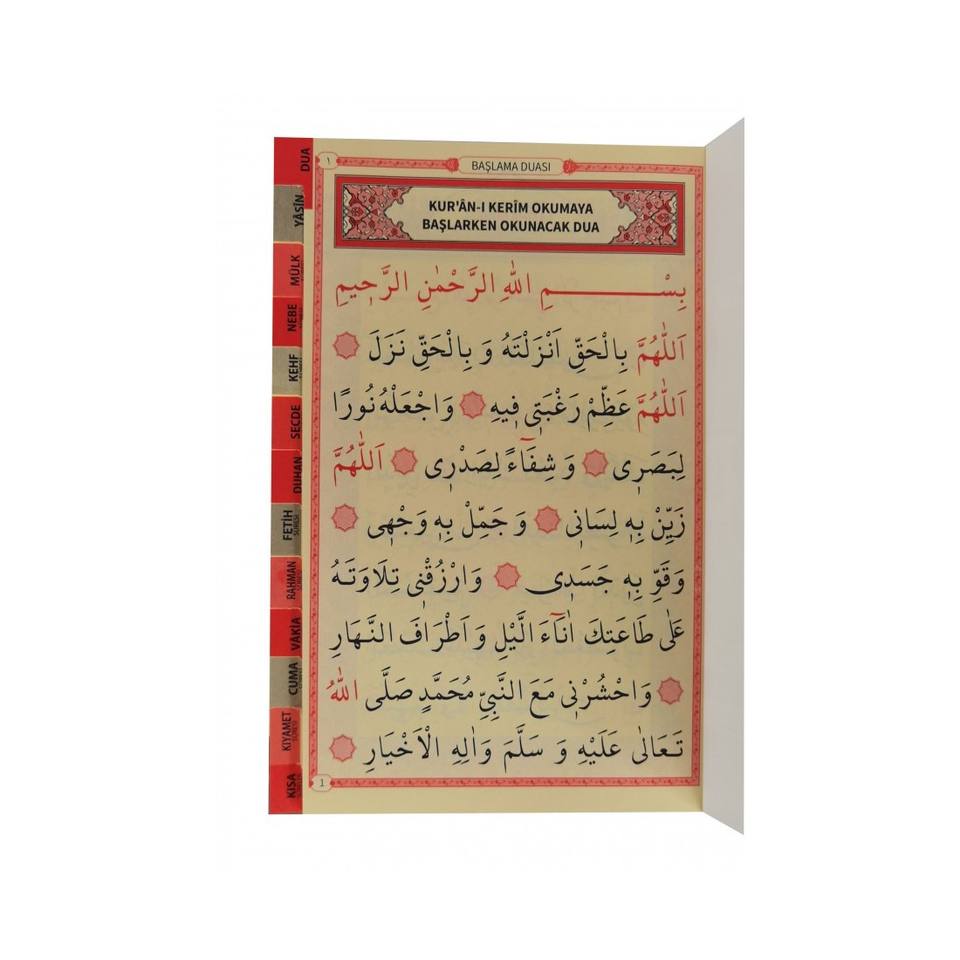 ١
BAŞLAMA DUASI
KUR'ÂN-I KERÎM OKUMAYA
BAŞLARKEN OKUNACAK DUA
بِسْمِ اللّٰهِ الرَّحْمٰنِ الرَّحٖيمِ
اَللّٰهُمَّ بِالْحَقِّ اَنْزَلْتَهُ وَ بِالْحَقِّ نَزَلَ
اَللّٰهُمَّ عَظِّمْ رَغْبَتٖى فٖيهِ وَاجْعَلْهُ نُورًا
لِبَصَرٖى وَ شِفَٓاءً لِصَدْرٖى اَللّٰهُمَّ
زَيِّنْ بِهٖ لِسَانٖى وَ جَمِّلْ بِهٖ وَجْهٖى
وَ قَوِّ بِهٖ جَسَدٖى وَارْزُقْنٖى تِلَاوَتَهُ
عَلٰى طَاعَتِكَ اٰنَٓاءَ الَّيْلِ وَ اَطْرَافَ النَّهَارِ
وَاحْشُرْنٖى مَعَ النَّبِيِّ مُحَمَّدٍ صَلَّى اللّٰهُ
تَعَالٰى عَلَيْهِ وَ سَلَّمَ وَاٰلِهِ الْاَخْيَارِ
1
DUA
YÂSİN
MÜLK
NEBE
KEHF
SECDE
DUHAN
FETİH
RAHMAN
VÂKIA
CUMA
KIYAMET
KISA